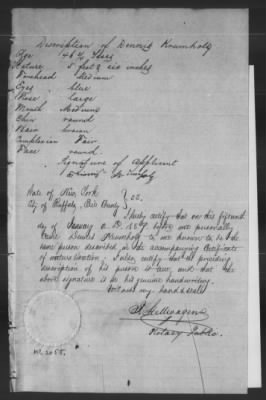 Description of Dennis Krumholz
Age 46 Years
Stature 5 feet 2 six inches
Forehead Medium
Eyes blue
Nose large
Mouth Medium
Chin round
Hair brown
Complexion Fair
Face round
Signature of Applicant
State of New York
City of Buffalo, Erie County } SS.
I hereby certify that on this fifteenth
day of January A.D. before me personally
came Dennis Krumholz to me known to be the
same person described in the accompanying Certificate
of naturalization; I also certify that the preceding
description of his person is true, and that the
above signature is in his genuine handwriting.
Witness my hand & seal
Notary Public.